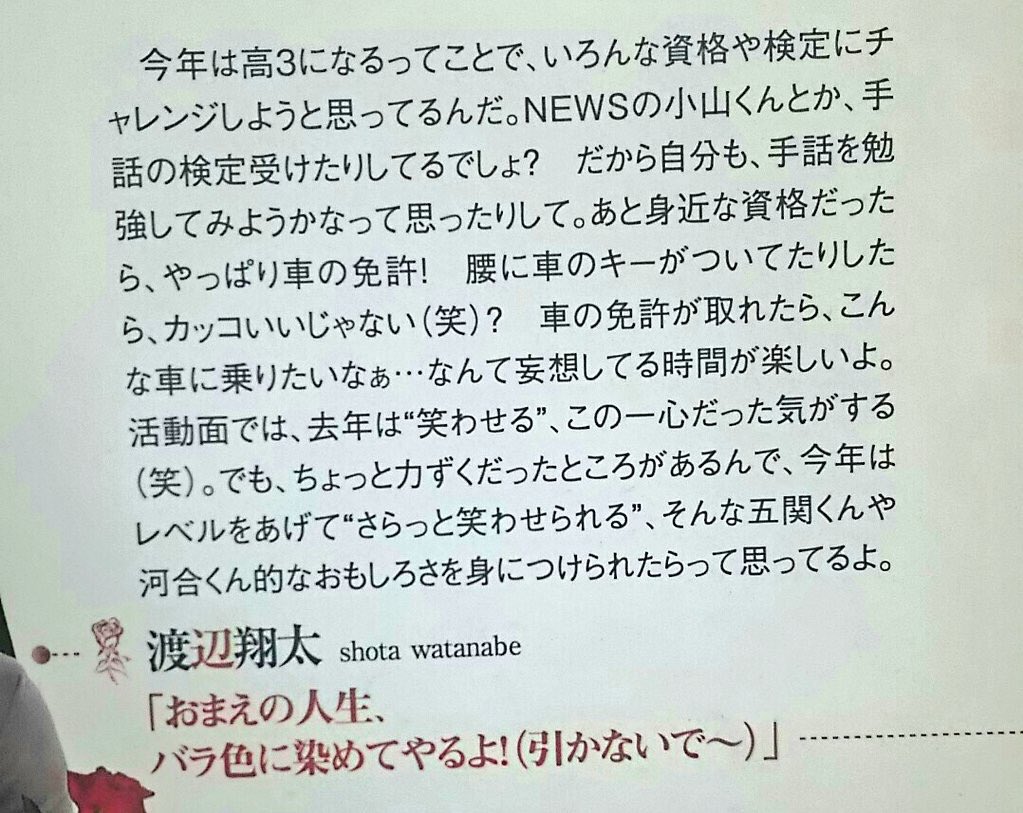 今年は高3になるってことで、いろんな資格や検定にチ
ャレンジしようと思ってるんだ。NEWSの小山くんとか、手
話の検定受けたりしてるでしょ?　だから自分も、手話を勉
強してみようかなって思ったりして。あと身近な資格だった
ら、やっぱり車の免許!　腰に車のキーがついてたりした
ら、カッコいいじゃない(笑)?　車の免許が取れたら、こん
な車に乗りたいなぁ…なんて妄想してる時間が楽しいよ。
活動面では、去年は“笑わせる”、この一心だった気がする
(笑)。でも、ちょっと力ずくだったところがあるんで、今年は
レベルをあげて“さらっと笑わせられる”、そんな五関くんや
河合くん的なおもしろさを身につけられたらって思ってるよ。
渡辺翔太 shota watanabe
「おまえの人生、
バラ色に染めてやるよ!(引かないで〜)」